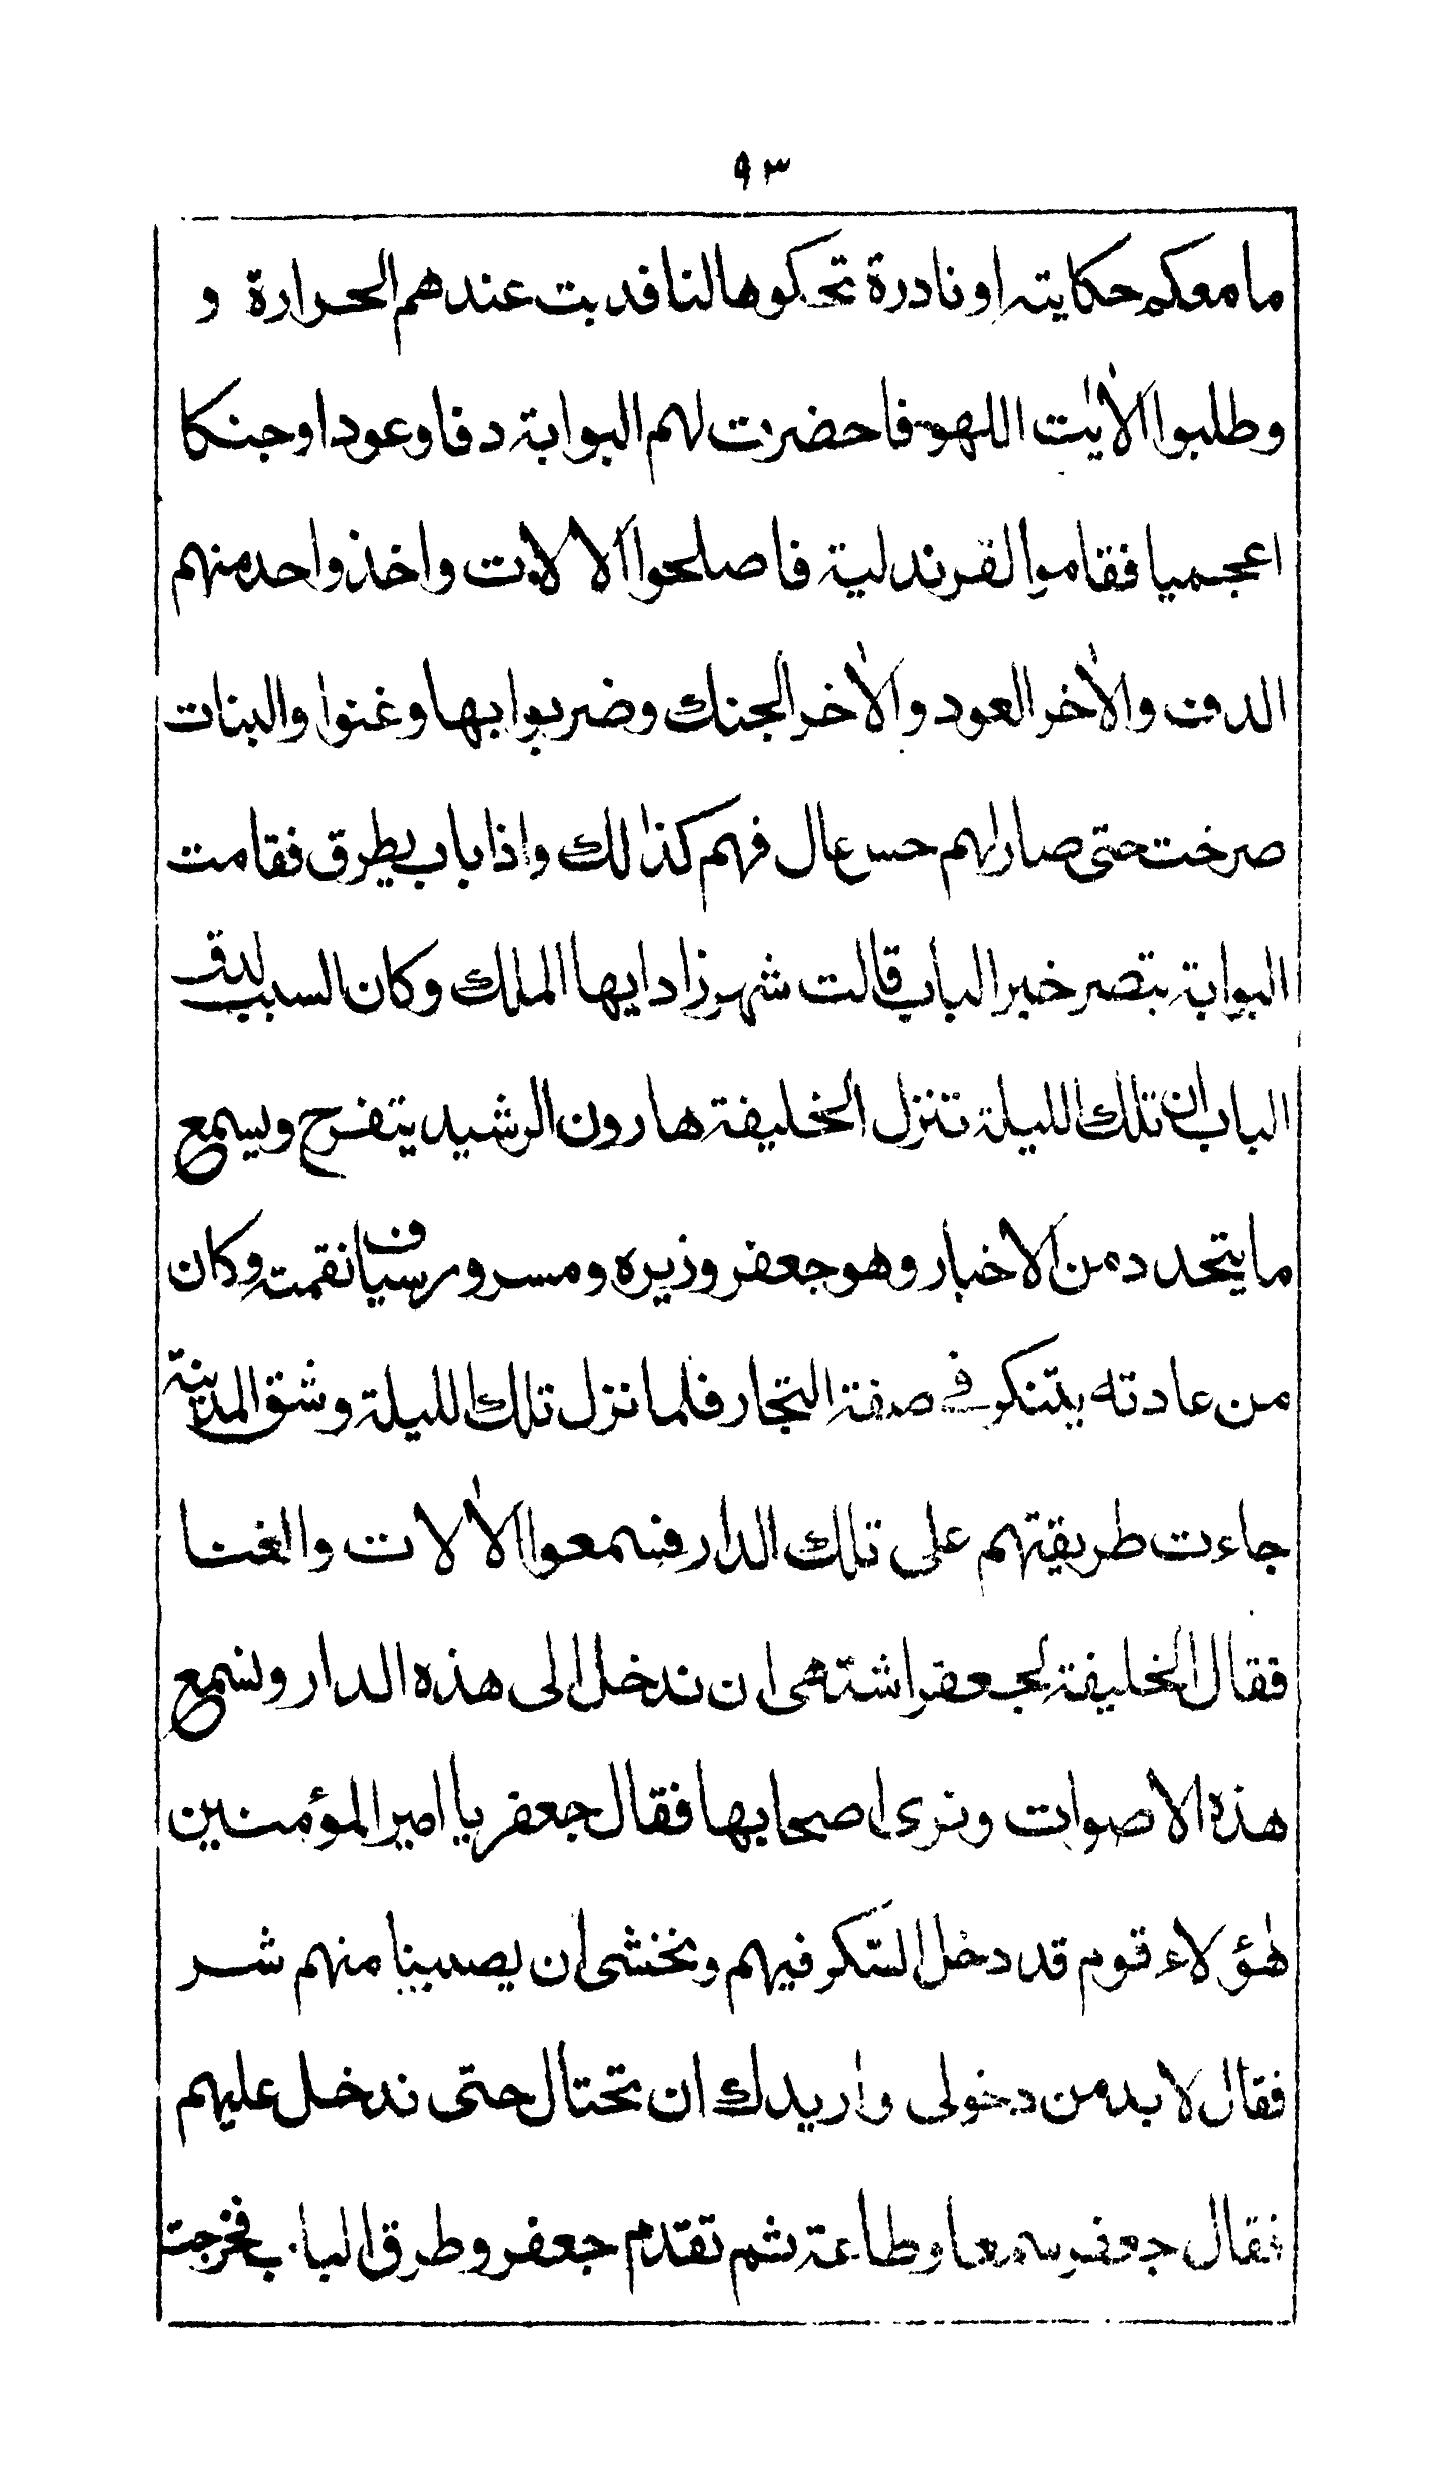 ٩٣
ما معكم حكاية او نادرة تحكوها لنا فدبت عندهم الحرارة و
وطلبوا الاٰيٰت اللهو فاحضرت لهم البوابة دفا وعودا وجنكا
اعجميا فقاموا القرندلية فاصلحوا الالات واخذ واحد منهم
الدف والاٰخر العود والاٰخر الجنك وضربوا بها وغنوا والبنات
صرخت حتى صار لهم حس عال فهم كذٰلك واذا باب يطرق فقامت
البوابة تبصر خبر الباب قالت شهرزاد ايها الملك وكان السبب لدق
الباب ان تلك الليلة تنزل الخليفة هارون الرشيد يتفرج ويسمع
ما يتجدد من الاخبار وهو جعفر وزيره ومسرور سياف نقمته وكان
من عادته يتنكر في صفة التجار فلما نزل تلك الليلة وشق المدينة
جاءت طريقتهم على تلك الدار فسمعوا الاٰلات والغنا
فقال الخليفة لجعفر اشتهى ان ندخل الى هذه الدار ونسمع
هذه الاصوات ونرى اصحابها فقال جعفر يا امير المؤمنين
هٰؤلاء قوم قد دخل السكر فيهم ونخشى ان يصيبنا منهم شر
فقال لا بد من دخولى واريدك ان تحتال حتى ندخل عليهم
فقال جعفر سمعا وطاعة ثم تقدم جعفر وطرق الباب فخرجت